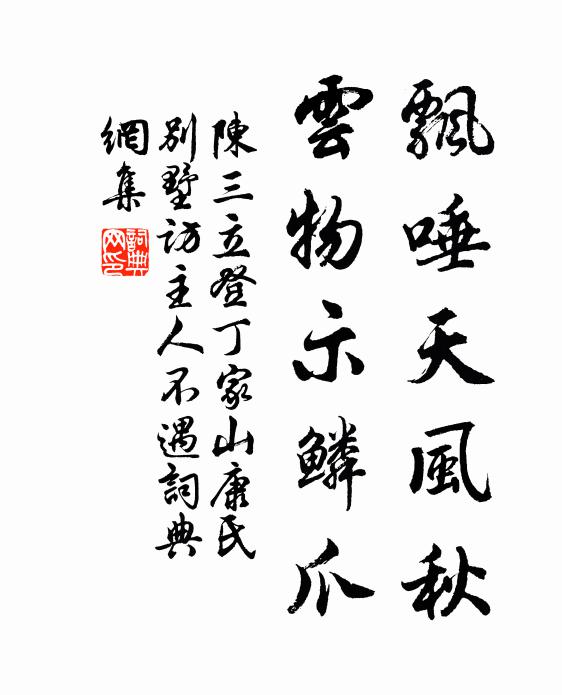 飄唾天風秋
雲物示鱗爪
陳三立登丁家山康氏
別墅訪主人不遇詞典
網集
詞典網印